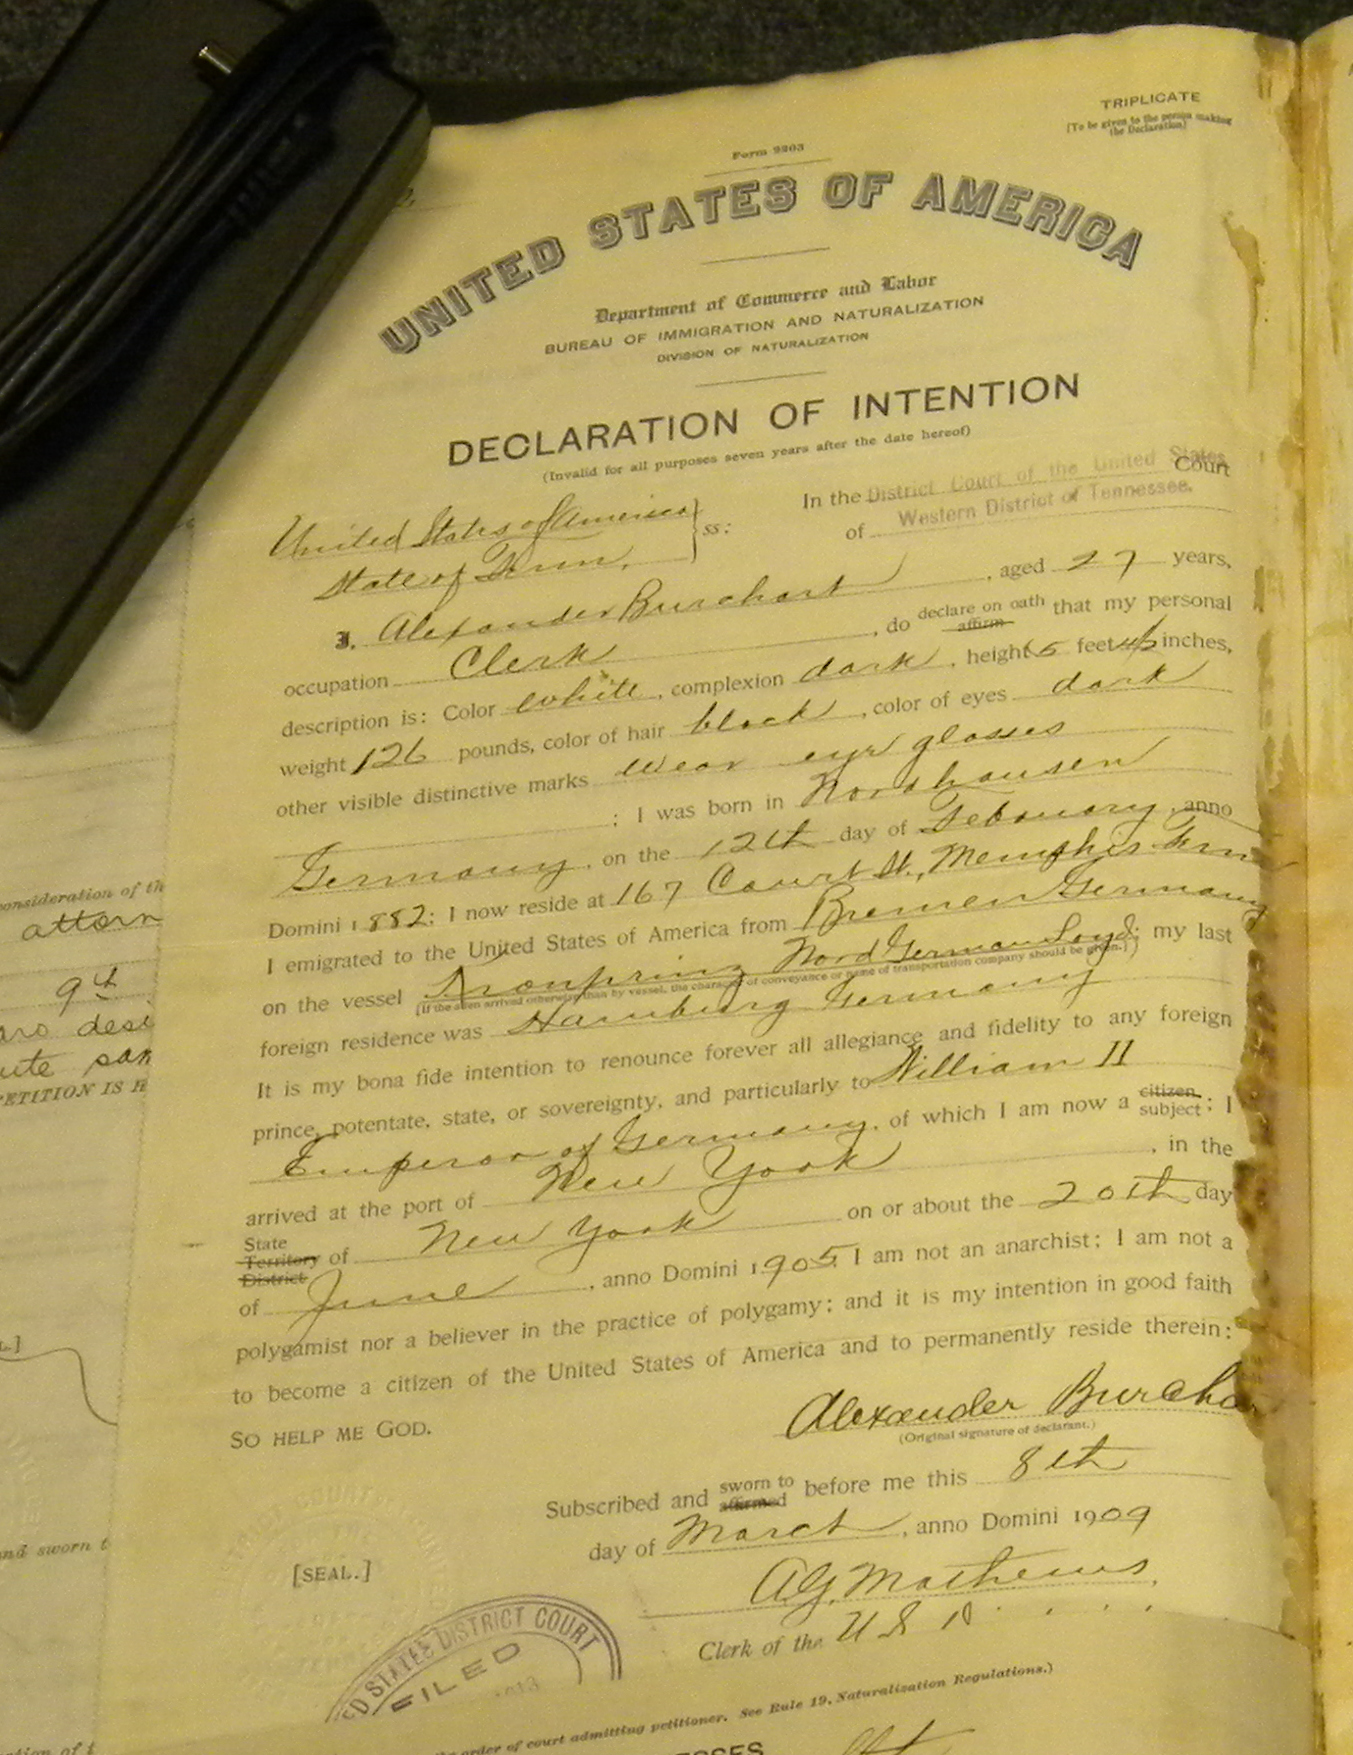 TRIPLICATE
[To be given to the person making
the Declaration]
Form 2203
UNITED STATES OF AMERICA
Department of Commerce and Labor
BUREAU OF IMMIGRATION AND NATURALIZATION
DIVISION OF NATURALIZATION
DECLARATION OF INTENTION
(Invalid for all purposes seven years after the date hereof)
United States of America } ss: In the District Court of the United States Court
State of Tenn. of Western District of Tennessee.
I, Alexander Burchart, aged 27 years,
occupation Clerk, do declare on oath affirm that my personal
description is: Color white, complexion dark, height 5 feet inches,
weight 126 pounds, color of hair black, color of eyes dark
other visible distinctive marks wear eye glasses
; I was born in Nordhausen
Germany, on the 12th day of February, anno
Domini 1882; I now reside at 167 Court St., Memphis Tenn
I emigrated to the United States of America from Bremen Germany
on the vessel Kronprinz Nord German Loyd; my last
(If the alien arrived otherwise than by vessel, the character of conveyance or name of transportation company should be given.)
foreign residence was Hamburg Germany
It is my bona fide intention to renounce forever all allegiance and fidelity to any foreign
prince, potentate, state, or sovereignty, and particularly to William II
Emperor of Germany, of which I am now a citizen subject; I
arrived at the port of New York, in the
State Territory District of New York on or about the 20th day
of June, anno Domini 1905; I am not an anarchist; I am not a
polygamist nor a believer in the practice of polygamy; and it is my intention in good faith
to become a citizen of the United States of America and to permanently reside therein:
SO HELP ME GOD.
Alexander Burcha
(Original signature of declarant.)
Subscribed and sworn to affirmed before me this 8th
[SEAL.] day of March, anno Domini 1909
A.G. Mathews,
Clerk of the U S D
STATES DISTRICT COURT
FILED
order of court admitting petitioner. See Rule 19, Naturalization Regulations.)
onsideration of th
attorn
9th
desi
ETITION IS H
nd sworn t